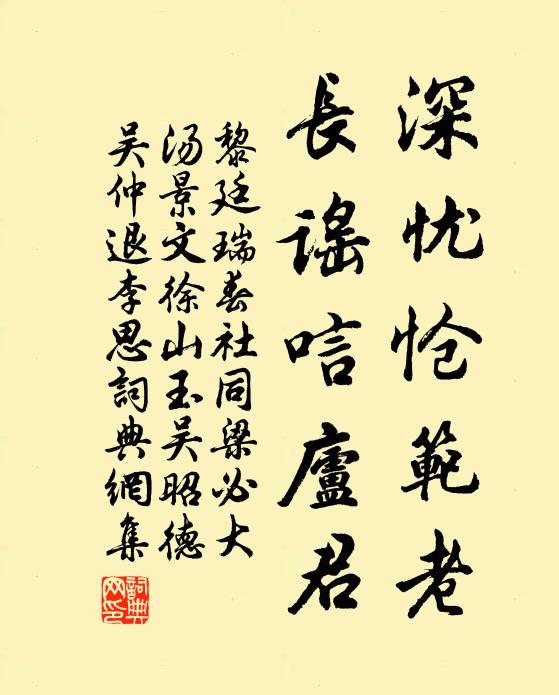 深忧怆範老
長謡唁廬君
黎廷瑞春社同梁必大
汤景文徐山玉吴昭德
吴仲退李思詞典網集
詞典網印